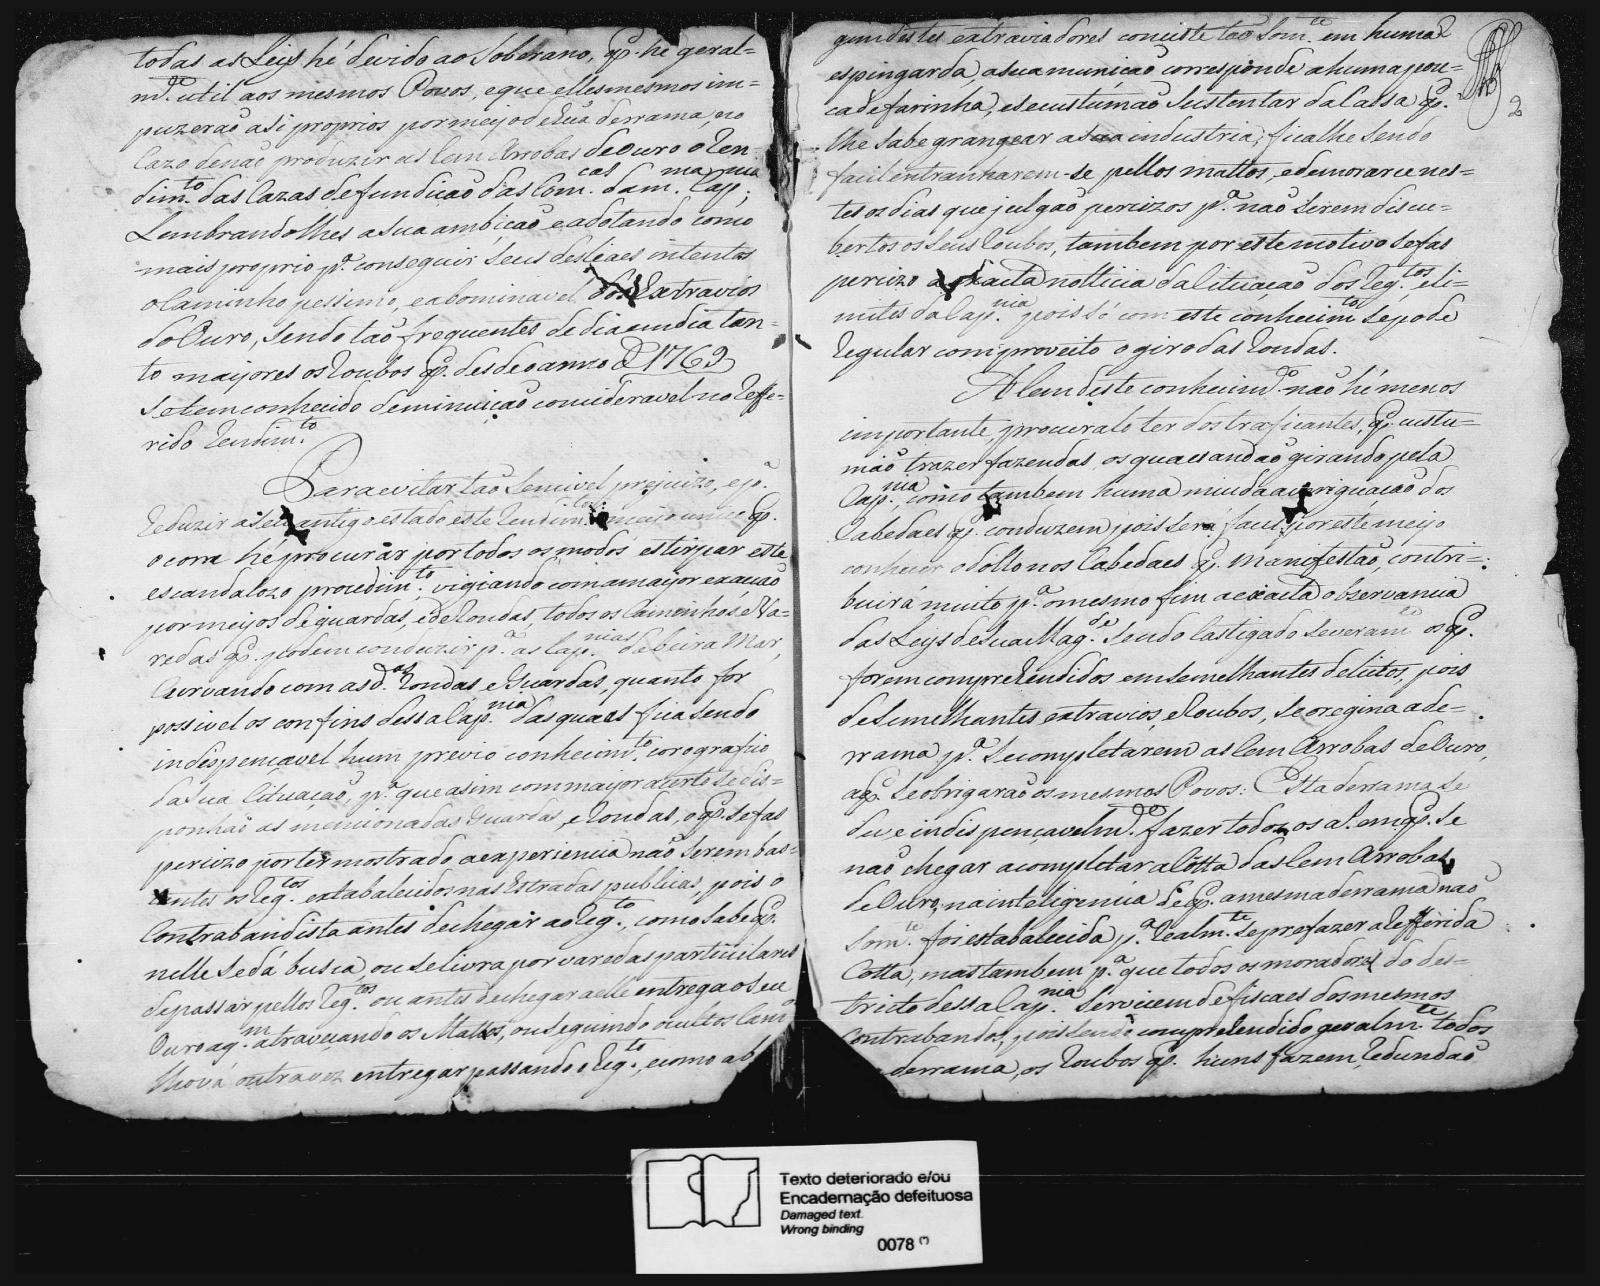 todas as Leys hé devido ao Soberano, q̃. hé geral=
m.te util aos mesmos Povos, e que elles mesmos im=
puzeraõ asi proprios por meijo de hũa derrama, no
Cazo denaõ produzir as Cem Arrobas de Ouro o Ren-
dim.to das Cazas de fundiçaõ das Com.cas dam.ma Cap.nia,
Lembrandolhes a Sua ambiçaõ e adotando como
mais proprio p.a conseguir Seus desleaes intentos
o Caminho pessimo, e abominavel dos Extravios
do Ouro, Sendo taõ frequentes de dia em dia tan=
to mayores os Roubos q̃. desde o anno d 1769
Setem conhecido deminuiçaõ concideravel no Reffe=
rido Rendim.to
Para evitar taõ Sencivel prejuizo, e p.a
Reduzir a Seu antigo estado este Rendim.to o meijo unico q̃.
ocorre hé procurar por todos os modos estirpar este
escandalozo procedim.to vigiando com a mayor exaçaõ
por meijos de guardas, e de Rondas, todos os Caminhos e Va=
redas q̃. podem conduzir p.a as Cap.nias de beira Mar,
Curvando com as d.as Rondas, e Guardas, quanto for
possivel os confins dessa Cap.nia das quaes fica sendo
indespençavel hum previo conhecim.to corografico
da Sua Cituaçaõ, p.a que asim com mayor acerto Se dis=
ponhaõ as mencionadas Guardas, e Rondas, o q̃. Se fas
percizo por ter mostrado a experiencia naõ Serem bas=
tantes os Reg.tos estabalecidos nas Estradas publicas, pois o
Contrabandista antes de chegar ao Reg.to, como Sabe q̃.
nelle Se dá busca, ou Se livra por varedas particulares
de passar pellos Reg.tos ou antes de chegar a elle entrega o Seu
Ouro aq.m atraveçando os Mattos, ou Seguindo ocultos Cami
lho vá outra vez entregar passando o Reg.to, e como a b
gem destes extraviadores conciste taõ Som.te em huma
espingarda, a Sua muniçaõ corresponde a huma pou=
ca de farinha, e Se custumaõ Sustentar da Cassa q̃.
lhe Sabe grangear a Sua industria, ficalhe Sendo
facil entranharem-se pellos mattos, e demorarce nes=
tes os dias que julgaõ percizos p.a naõ Serem discu=
bertos os Seus Roubos, tambem por este motivo Se fas
percizo a exacta notticia da Cituaçaõ dos Reg.tos, e li=
mites da Cap.nia pois Só com este conhecim.to Se pode
Regular com proveito o giro das Rondas.
Alem deste conhecim.to naõ hé menos
importante, procuralo ter dos traficantes, q̃. custu=
maõ trazer fazendas, os quaes andaõ girando pela
Cap.nia, como tambem huma miuda averiguaçaõ dos
Cabedaes q̃. conduzem, pois Será facil por este meijo
conhecer o dollo nos Cabedaes q̃. manifestaõ, contri=
buirá muito p.a o mesmo fim a exacta observancia
das Leijs de Sua Mag.de Sendo Castigado Severam.te os q̃.
forem comprehendidos em semelhantes delictos, pois
de Semelhantes extravios, e Roubos, Se oregina a de=
rrama p.a Se completarem as Cem Arrobas de Ouro,
a q̃. Se obrigaraõ os mesmos Povos: Esta derrama Se
deve indispençavelm.te fazer todos os a.s em q̃. Se
naõ chegar a completar a Cotta das Cem Arrobas
de Ouro, na inteligencia de q̃. a mesma derrama naõ
Som.te foi estabalecida, p.a Realm.te Se prefazer a Refferida
Cotta, mas tambem p.a que todos os moradores do des=
tricto dessa Cap.nia Servicem de fiscaes dos mesmos
Contrabandos, pois Sendo comprehendido geralm.te todos
derrama, os Roubos q̃. huns fazem, Redundaõ
2
Texto deteriorado e/ou
Encadernação defeituosa
Damaged text.
Wrong binding
0078 (*)